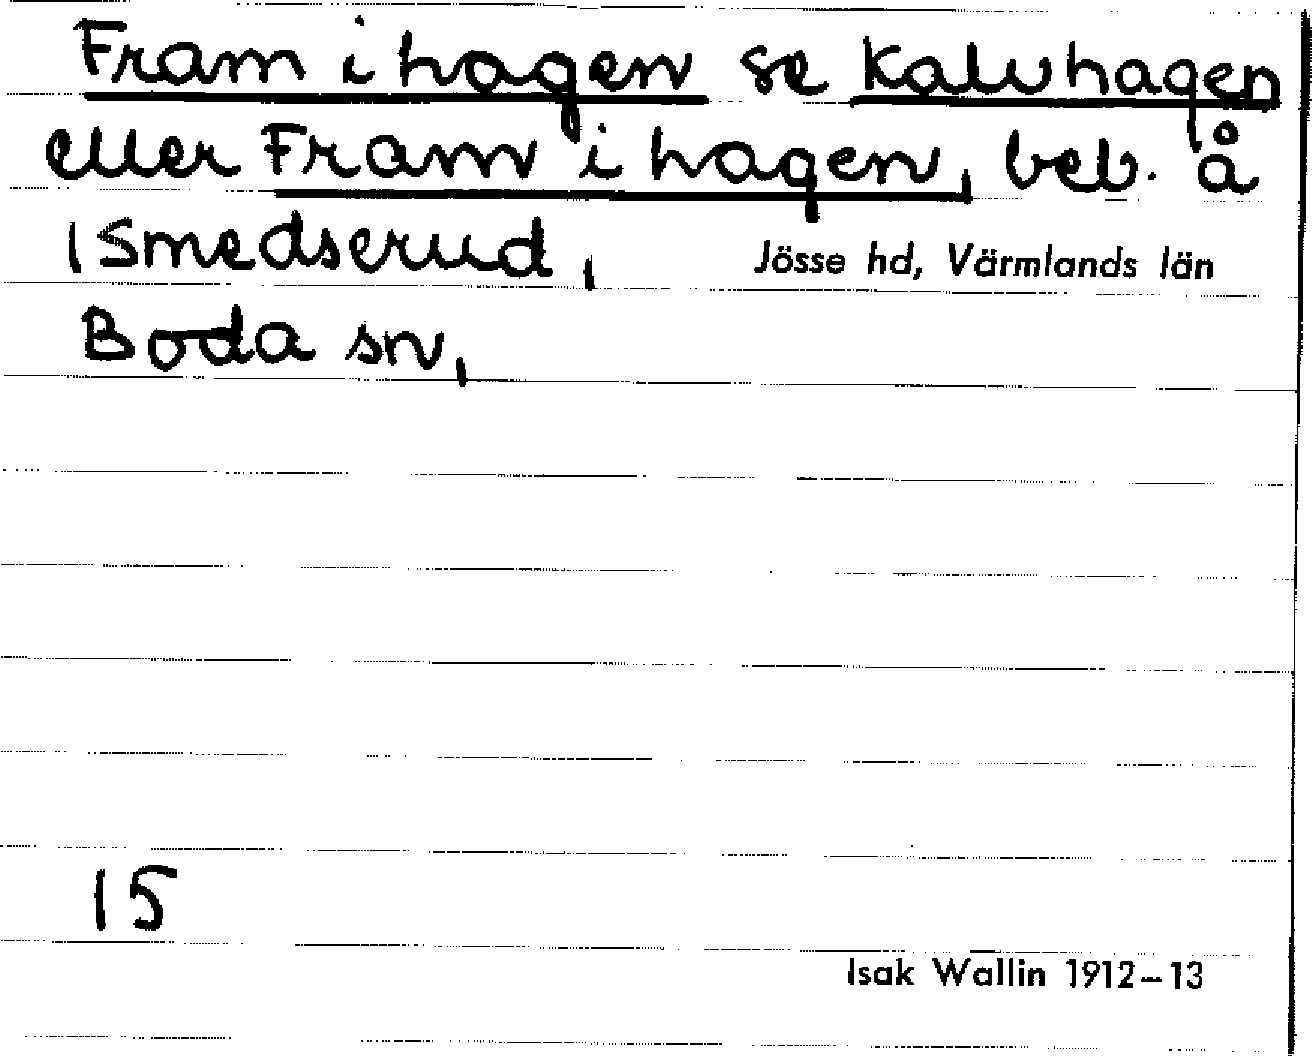 Fram i hagen se Kalvhagen
eller Fram i hagen, beb. å
1 Smedserud, Jösse hd, Värmlands län
Boda sn,
15
Isak Wallin 1912–13